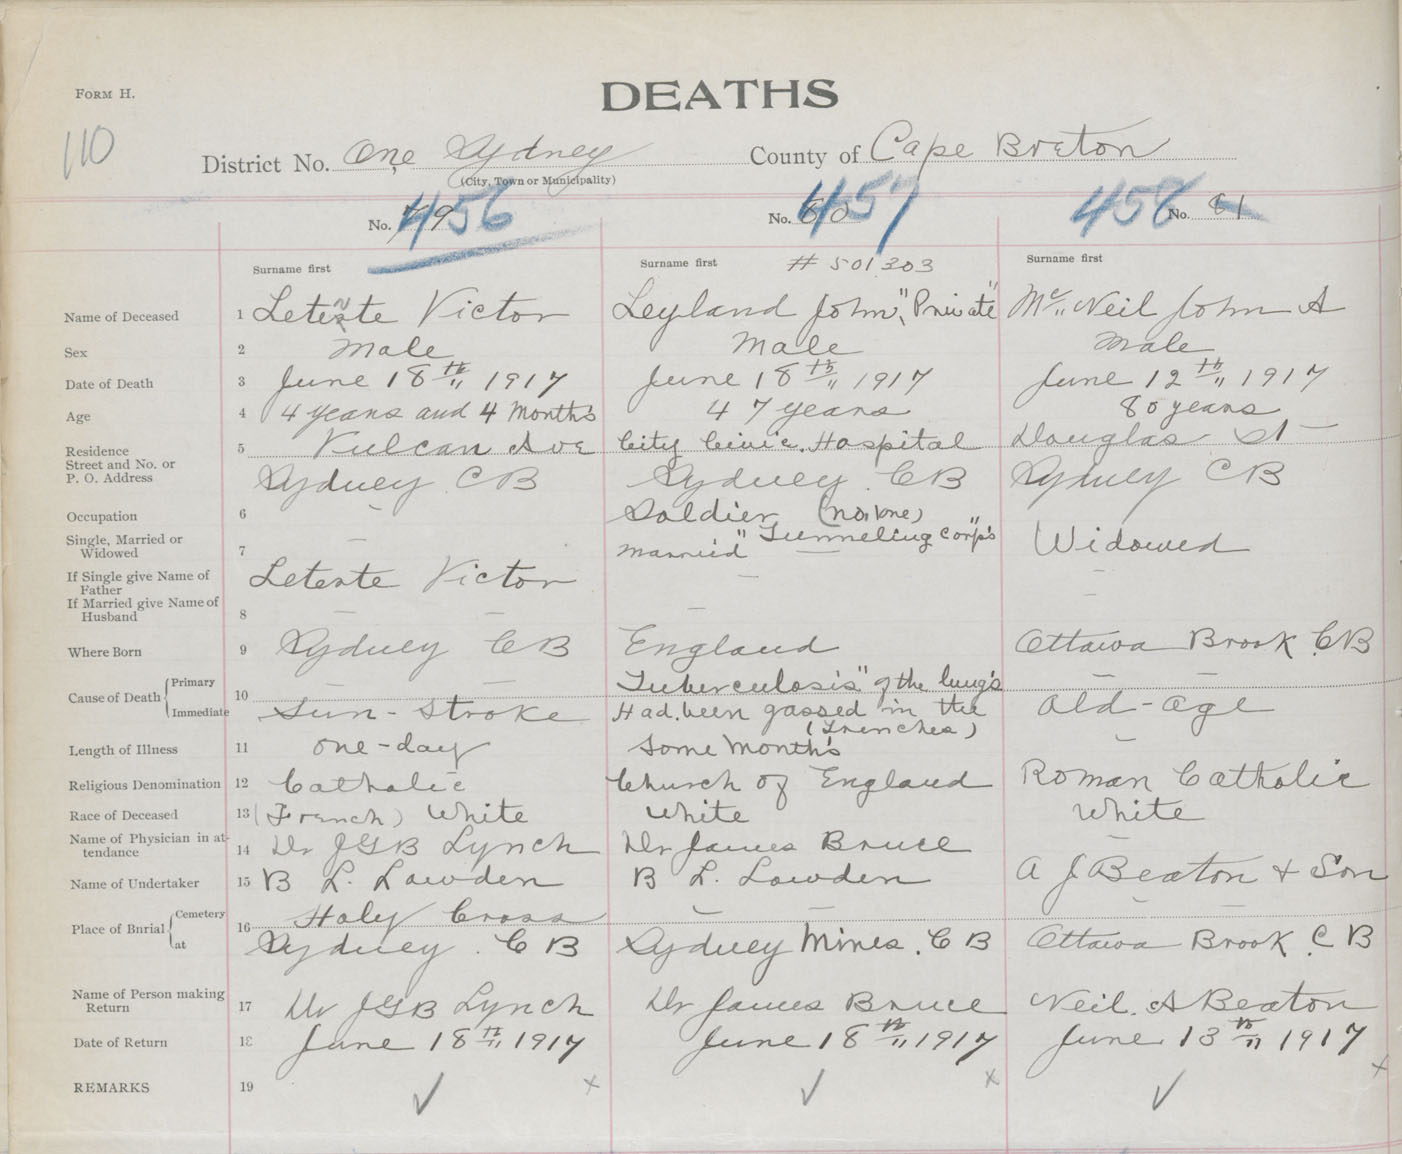 FORM H.
DEATHS
110
District No. One, Sydney County of Cape Breton
(City, Town or Municipality)
No. 79 456 No. 80 457 458 No. 81
Surname first Surname first # 501303 Surname first
Name of Deceased 1 Leteste Victor Leyland John, "Private" Mc Neil John A
Sex 2 Male Male Male
Date of Death 3 June 18th 1917 June 18th 1917 June 12th 1917
Age 4 4 years and 4 Months 47 years 80 years
Residence 5 Vulcan Ave City Civic. Hospital Douglas St
Street and No. or
P. O. Address Sydney CB Sydney. CB Sydney CB
Occupation 6 - Soldier (No. one)
"Tunneling Corp's"
Single, Married or
Widowed 7 - Married - Widowed
If Single give Name of
Father Leteste Victor - -
If Married give Name of
Husband 8 - - - -
Where Born 9 Sydney CB England Ottawa Brook C.B
Cause of Death Primary 10 - - Tuberculosis" of the lung's - -
Immediate Sun-Stroke Had been gassed in the Old-age
(Trenches)
Length of Illness 11 one-day Some Month's -
Religious Denomination 12 Catholic Church of England Roman Catholic
Race of Deceased 13 (French) White White White
Name of Physician in at-
tendance 14 Dr JGB Lynch Dr James Bruce -
Name of Undertaker 15 B L. Lowden B L. Lowden A J Beaton & Son
Place of Burial Cemetery 16 Holy Cross - - - -
at Sydney. C B Sydney Mines. C B Ottawa Brook C B
Name of Person making
Return 17 Dr JGB Lynch Dr James Bruce Neil. A Beaton
Date of Return 18 June 18th 1917 June 18th 1917 June 13th 1917
REMARKS 19 ✓ x ✓ x ✓ x